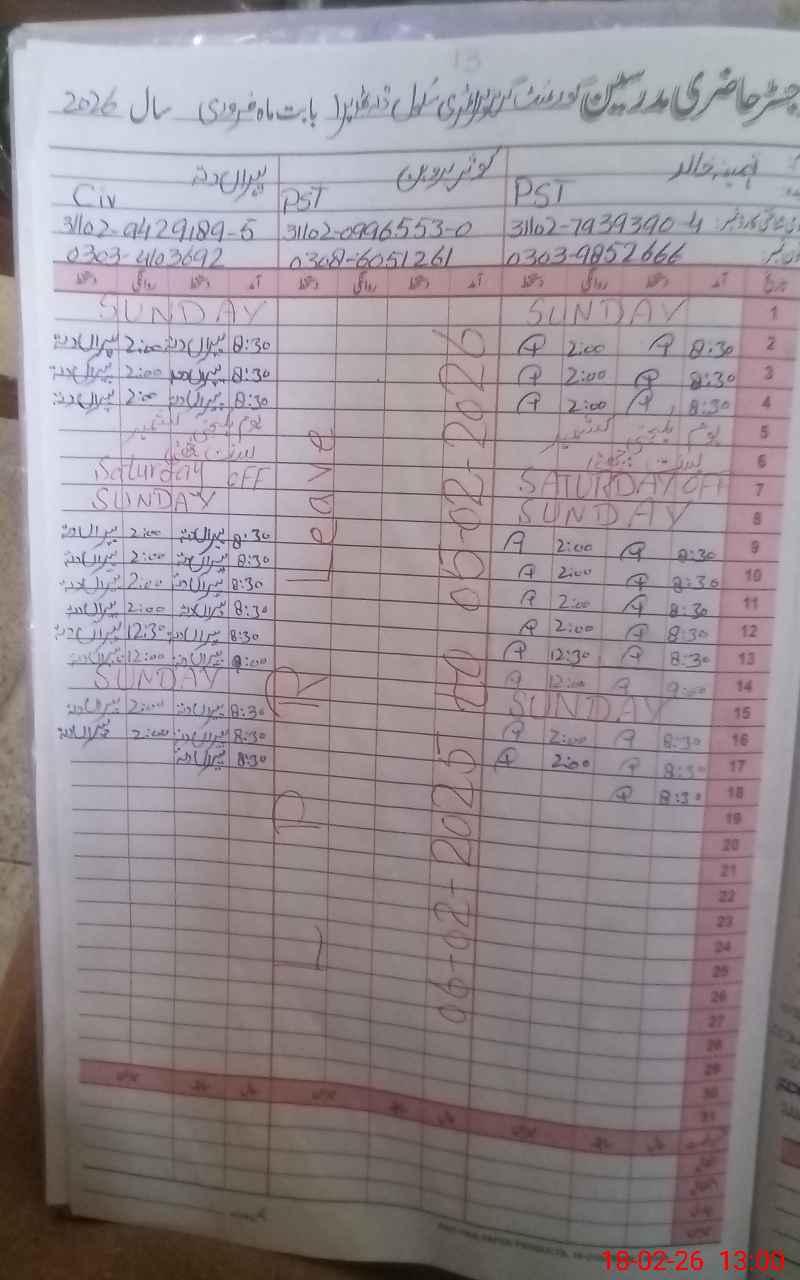 رجسٹر حاضری مدرسین گورنمنٹ گرلز پرائمری سکول بابت ماہ فروری سال 2026
ثمینہ خالد کوثر پروین پیراں دتہ
PST PST Civ
31102-7939390-4 31102-0996553-0 31102-9429189-5
0303-9852666 0308-6051261 0303-4103692
تاریخ آمد دستخط روانگی دستخط آمد دستخط روانگی دستخط آمد دستخط روانگی دستخط
1 SUNDAY SUNDAY
2 8:30 2:00 8:30 پیراں دتہ 2:00 پیراں دتہ
3 8:30 2:00 8:30 پیراں دتہ 2:00 پیراں دتہ
4 8:30 2:00 8:30 پیراں دتہ 2:00 پیراں دتہ
5 یوم یکجہتی کشمیر یوم یکجہتی کشمیر
6 بسنت چھٹی بسنت چھٹی
7 SATURDAY OFF Saturday OFF
8 SUNDAY SUNDAY
9 8:30 2:00 8:30 پیراں دتہ 2:00 پیراں دتہ
10 8:30 2:00 8:30 پیراں دتہ 2:00 پیراں دتہ
11 8:30 2:00 8:30 پیراں دتہ 2:00 پیراں دتہ
12 8:30 2:00 8:30 پیراں دتہ 2:00 پیراں دتہ
13 8:30 12:30 8:30 پیراں دتہ 12:30 پیراں دتہ
14 9:00 12:00 9:00 پیراں دتہ 12:00 پیراں دتہ
15 SUNDAY SUNDAY
16 8:30 2:00 8:30 پیراں دتہ 2:00 پیراں دتہ
17 8:30 2:00 8:30 پیراں دتہ 2:00 پیراں دتہ
18 8:30 8:30 پیراں دتہ
19
20
21
22
23
24
25
26
27
28
29
30
31
L P R Leave
06-02-2025 to 05-02-2026
18-02-26 13:00